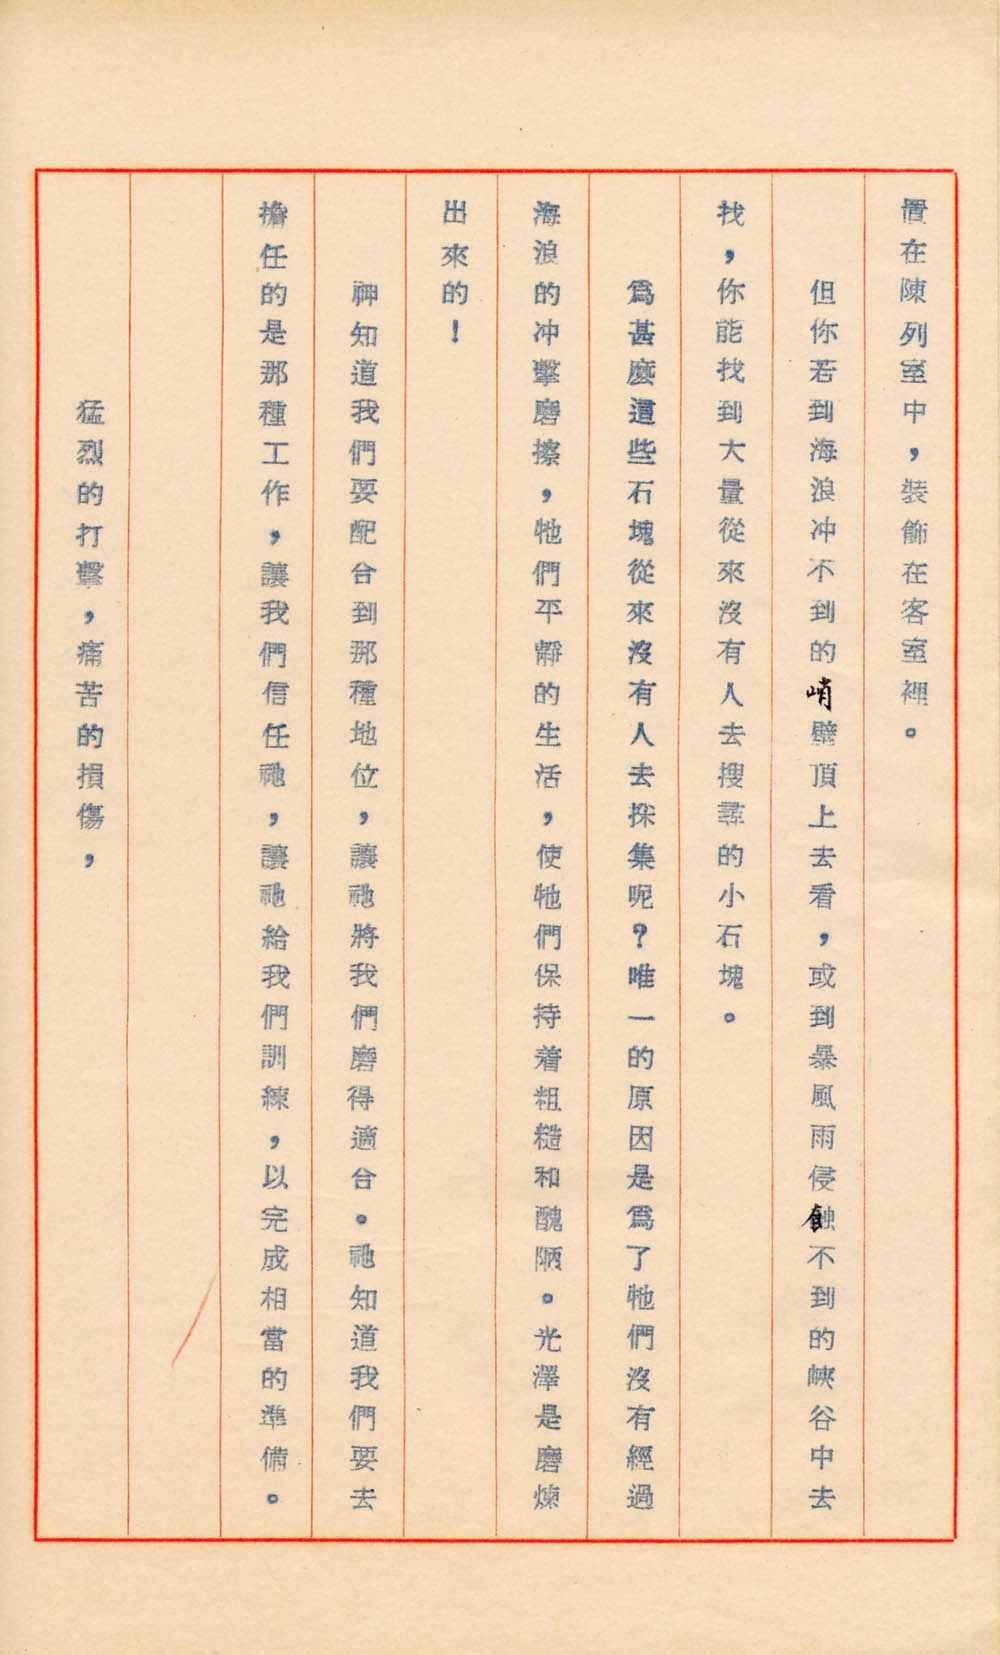 置在陳列室中，裝飾在客室裡。
但你若到海浪冲不到的峭壁頂上去看，或到暴風雨侵蝕不到的峽谷中去
找，你能找到大量從來沒有人去搜尋的小石塊。
爲甚麼這些石塊從來沒有人去採集呢？唯一的原因是爲了牠們沒有經過
海浪的冲擊磨擦，牠們平靜的生活，使牠們保持着粗糙和醜陋。光澤是磨煉
出來的！
神知道我們要配合到那種地位，讓祂將我們磨得適合。祂知道我們要去
擔任的是那種工作，讓我們信任祂，讓祂給我們訓練，以完成相當的準備。
猛烈的打擊，痛苦的損傷，